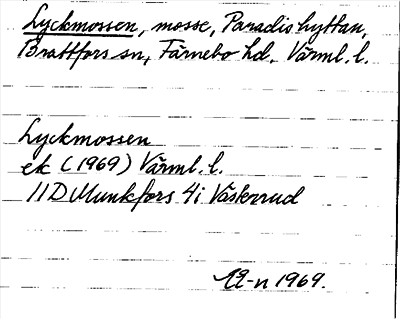 Lyckmossen, mosse, Paradishyttan,
Brattfors sn, Färnebo hd, Värml. l.
Lyckmossen
ek (1969) Värml. l.
11D Munkfors 4i
1969.